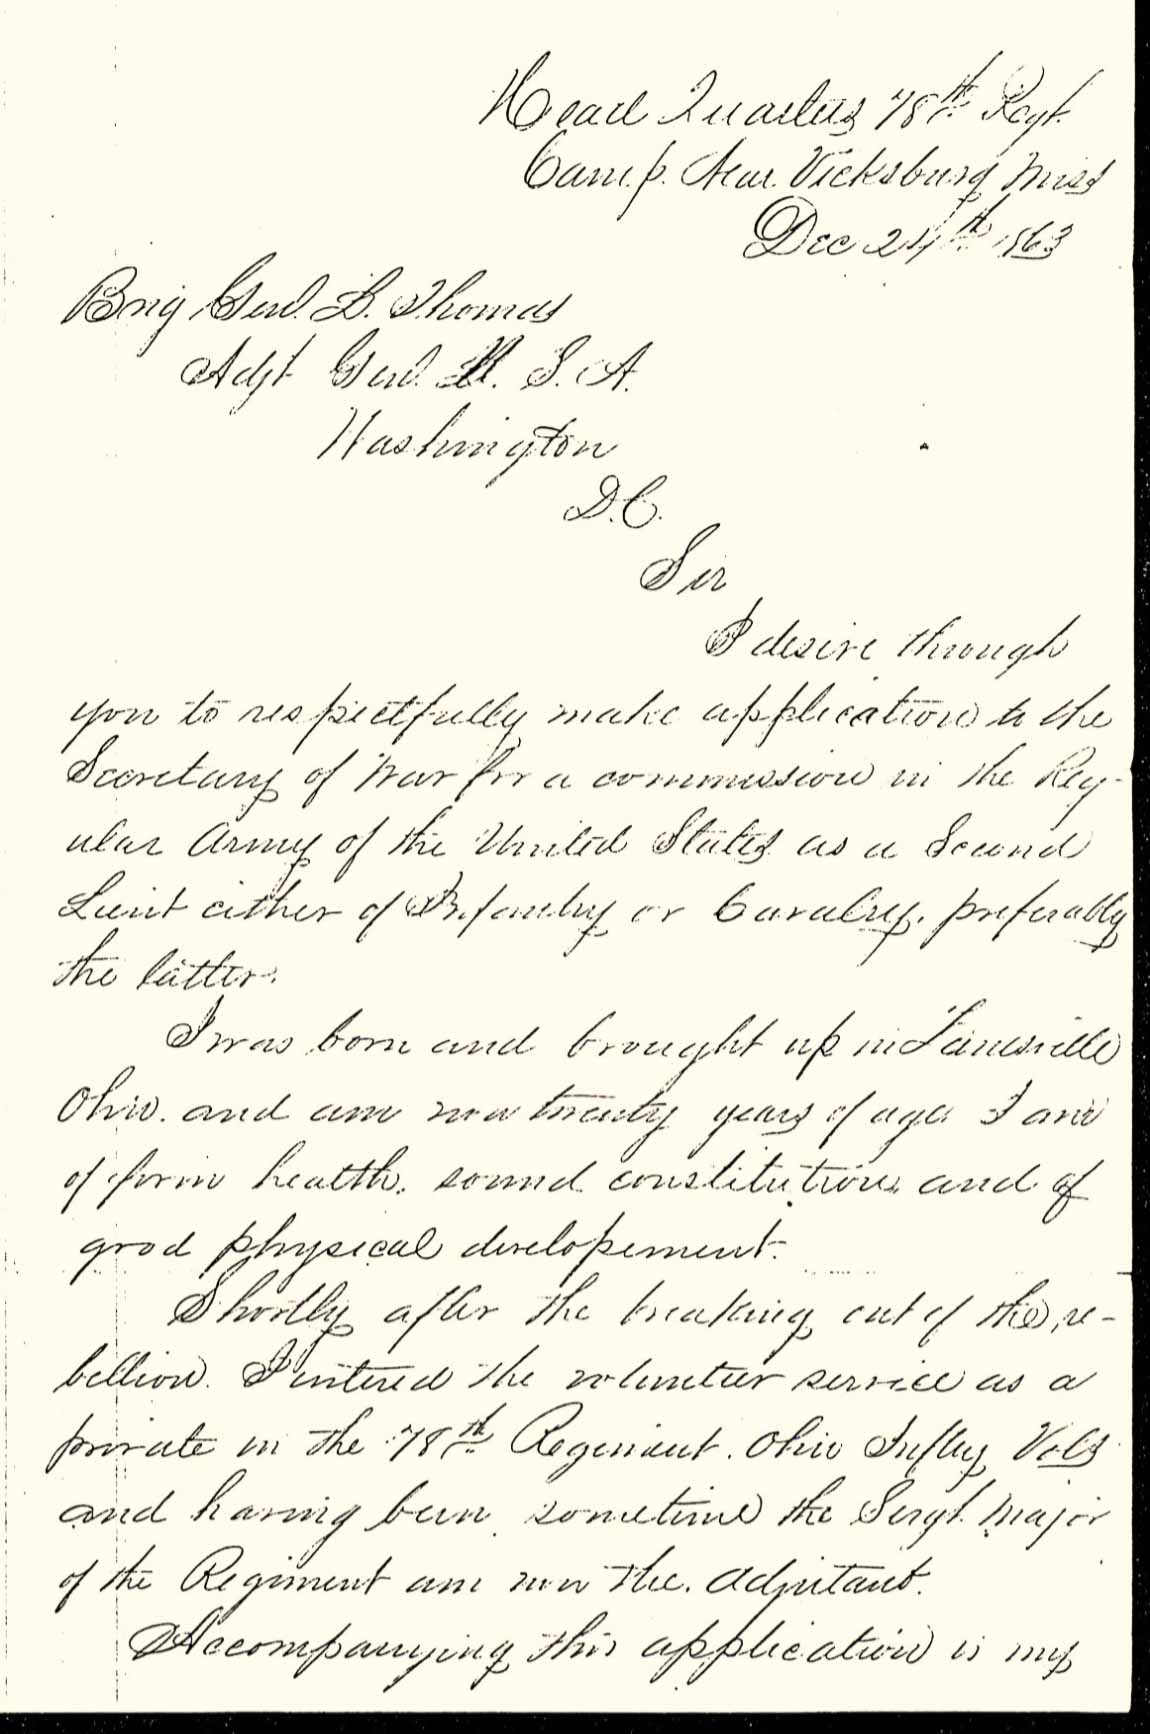 Head Quarters 78th Regt.
Camp. Near. Vicksburg Miss
Dec 24th 1863
Brig Genl. L. Thomas
Adjt Genl. U. S. A.
Washington
D.C.
Sir
I desire through
you to respectfully make application to the
Secretary of War for a commission in the Reg-
ular Army of the United States as a Second
Lieut either of Infantry or Cavalry. preferably
the latter.
I was born and brought up in Zanesville
Ohio. and am now twenty years of age I am
of firm health. sound constitution. and of
good physical developement.
Shortly after the breaking out of the re-
bellion. I entered the volunteer service as a
private in the 78th Regiment. Ohio Inftry Vols
and having been sometime the Sergt. Major
of the Regiment am now the. Adjutant.
Accompanying this application is my